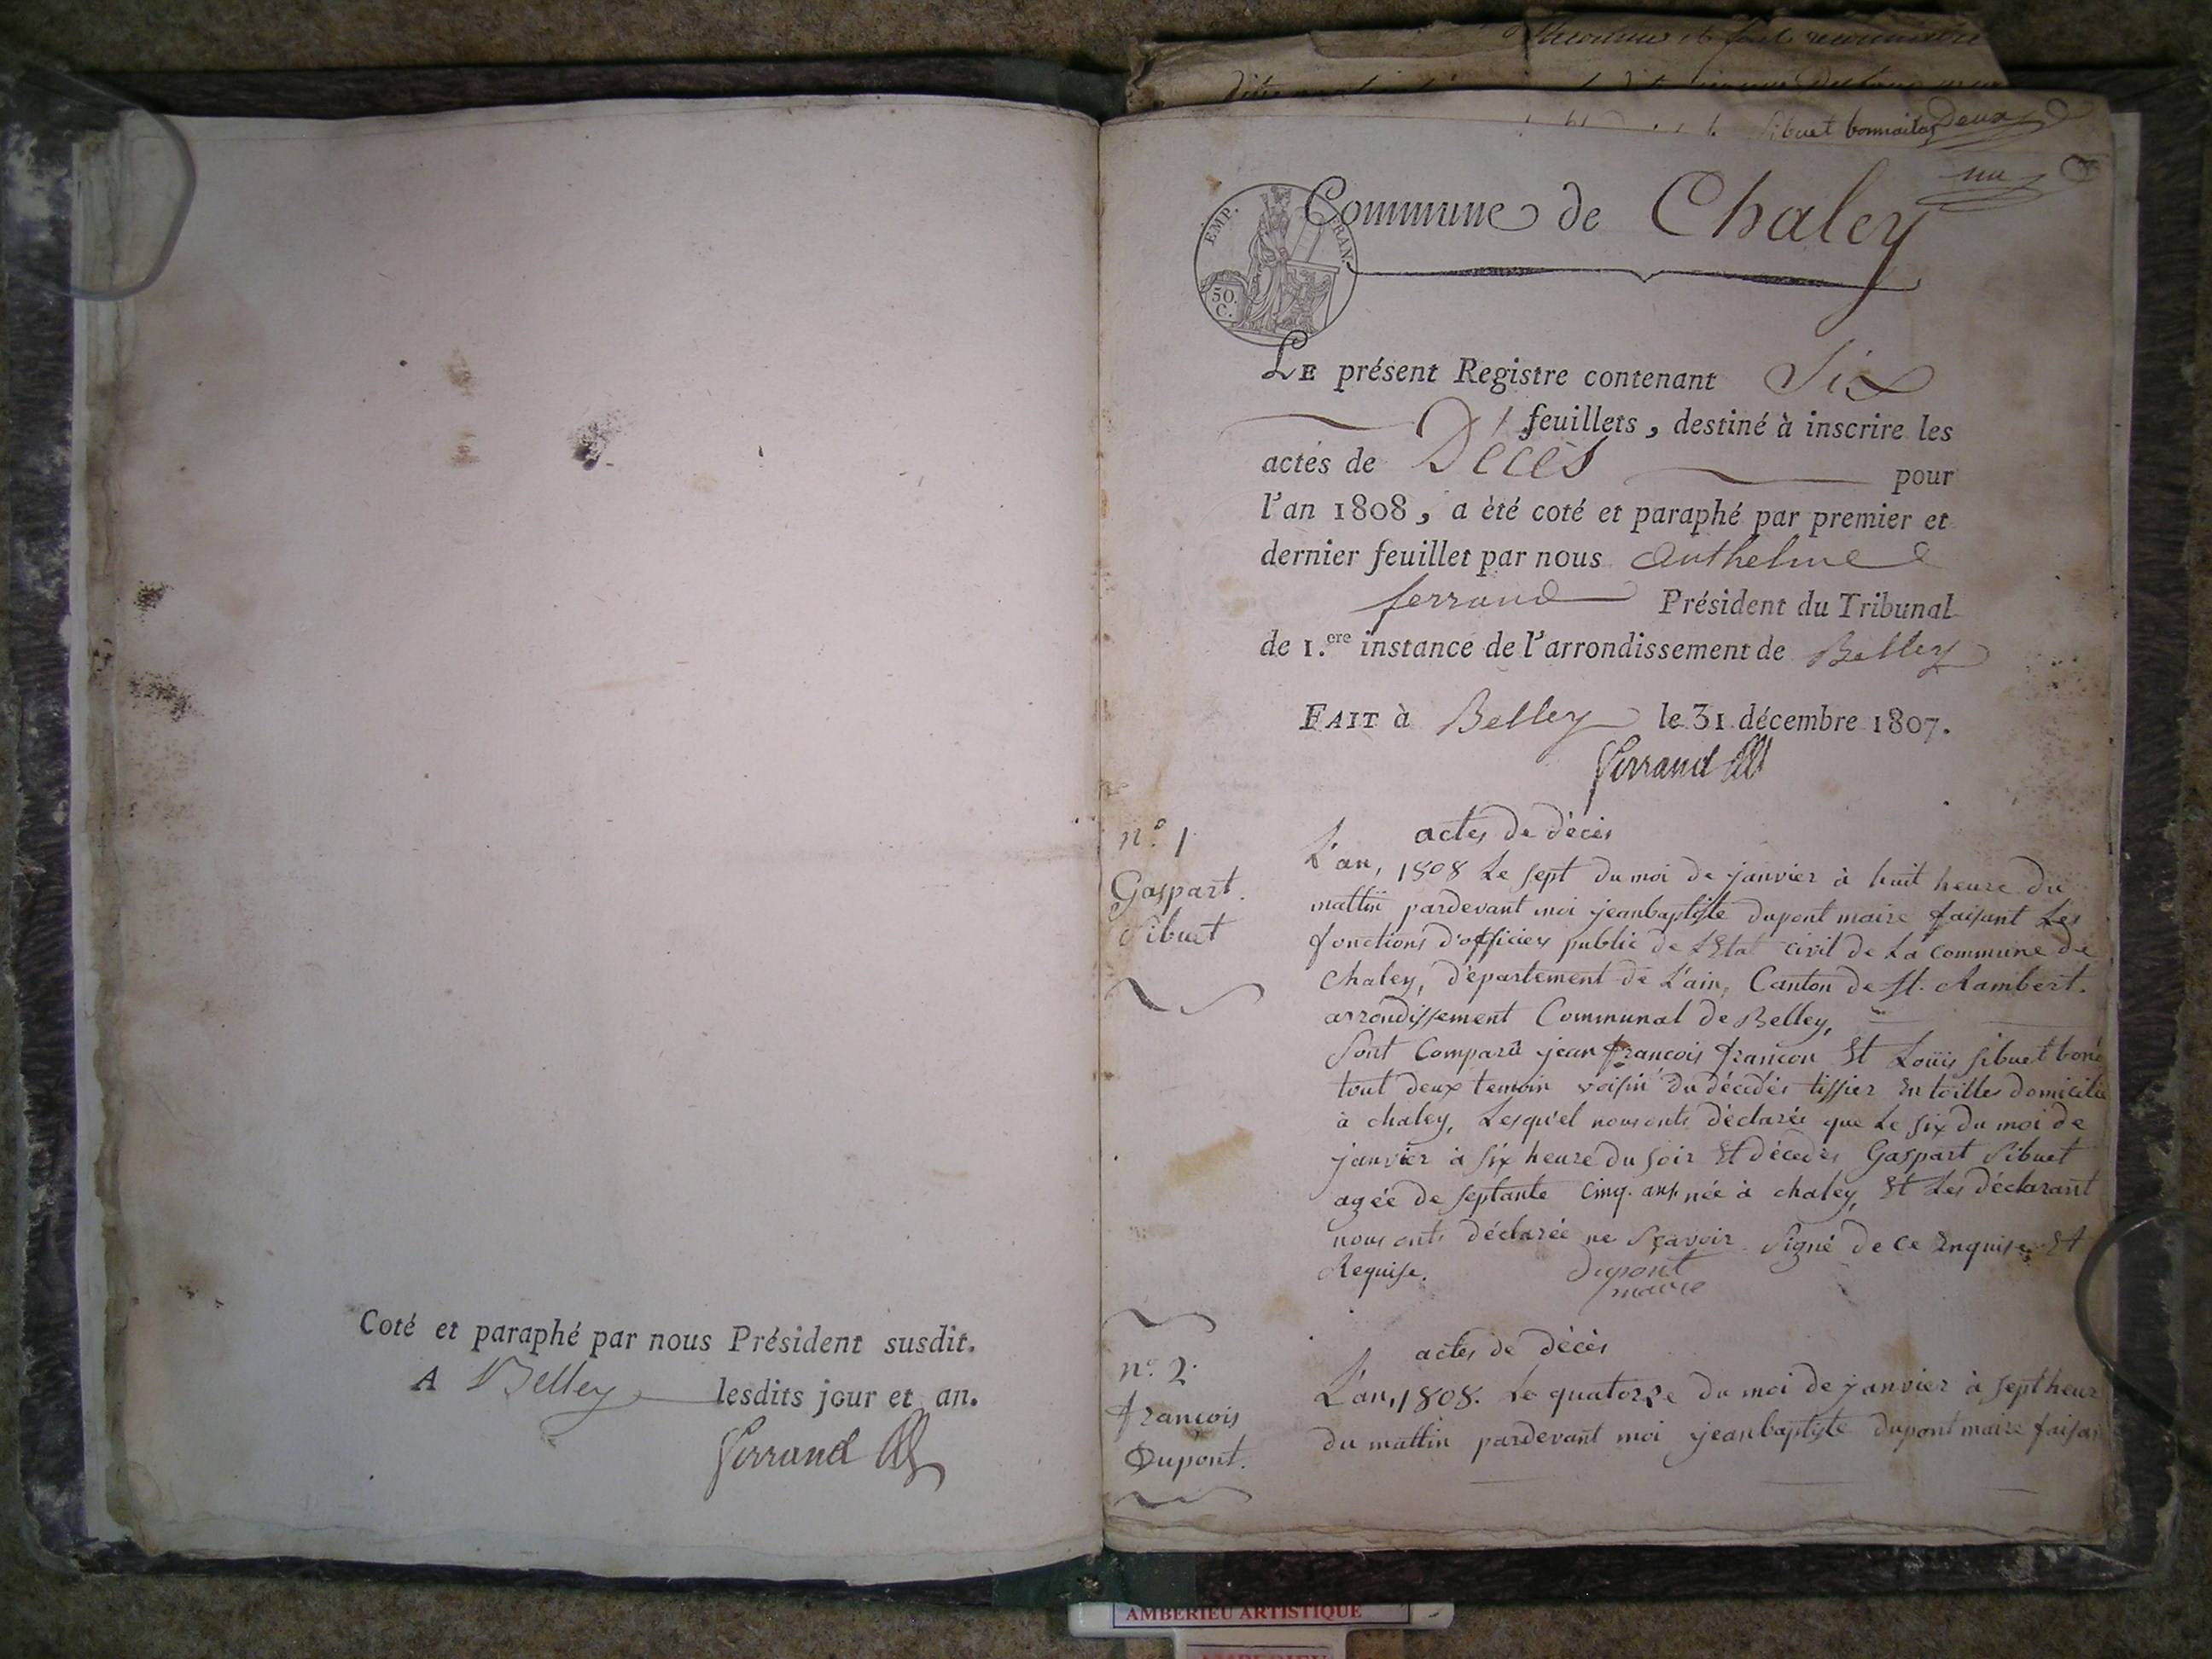 Coté et paraphé par nous Président susdit.
A Belley lesdits jour et an.
Ferrand
Sibuet bonnaitay Deux
un
EMP. FRAN.
50.
C.
Commune de Chaley
LE présent Registre contenant Six
feuillets, destiné à inscrire les
actes de Décès pour
l'an 1808, a èté coté et paraphé par premier et
dernier feuillet par nous Anthelme
ferrand Président du Tribunal
de 1.ere instance de l'arrondissement de Belley
FAIT à Belley le 31 décembre 1807.
Ferrand
n.º 1
Gaspart.
Sibuet
actes de décès
L'an, 1808 Le sept du moi de janvier à huit heure du
mattin pardevant moi jeanbaptiste dupont maire faisant Les
fonctions d'officiers public de L'Etat civil de La commune de
Chaley, département de L'ain, Canton de St. Rambert.
arrondissement Communal de Belley,
Sont Comparû jean françois françon Et Loüis Sibuet bon
tout deux temoin voisin du décedés tissier En toilles domicilie
à chaley, Lesqu'el nous onts déclarée que Le six du moi de
janvier à six heure du soir Et décedés Gaspart Sibuet
agée de septante cinq. ans. née à chaley, Et Les déclarant
nous onts déclarée ne Sçavoir Signé de ce Enquise Et
Requise. dupont
maire
n.º 2.
françois
Dupont.
actes de décès
L'an, 1808. Le quatorze du moi de janvier à sept heur
du mattin pardevant moi jeanbaptiste dupont maire faisan
AMBERIEU ARTISTIQUE
AMBERIEU